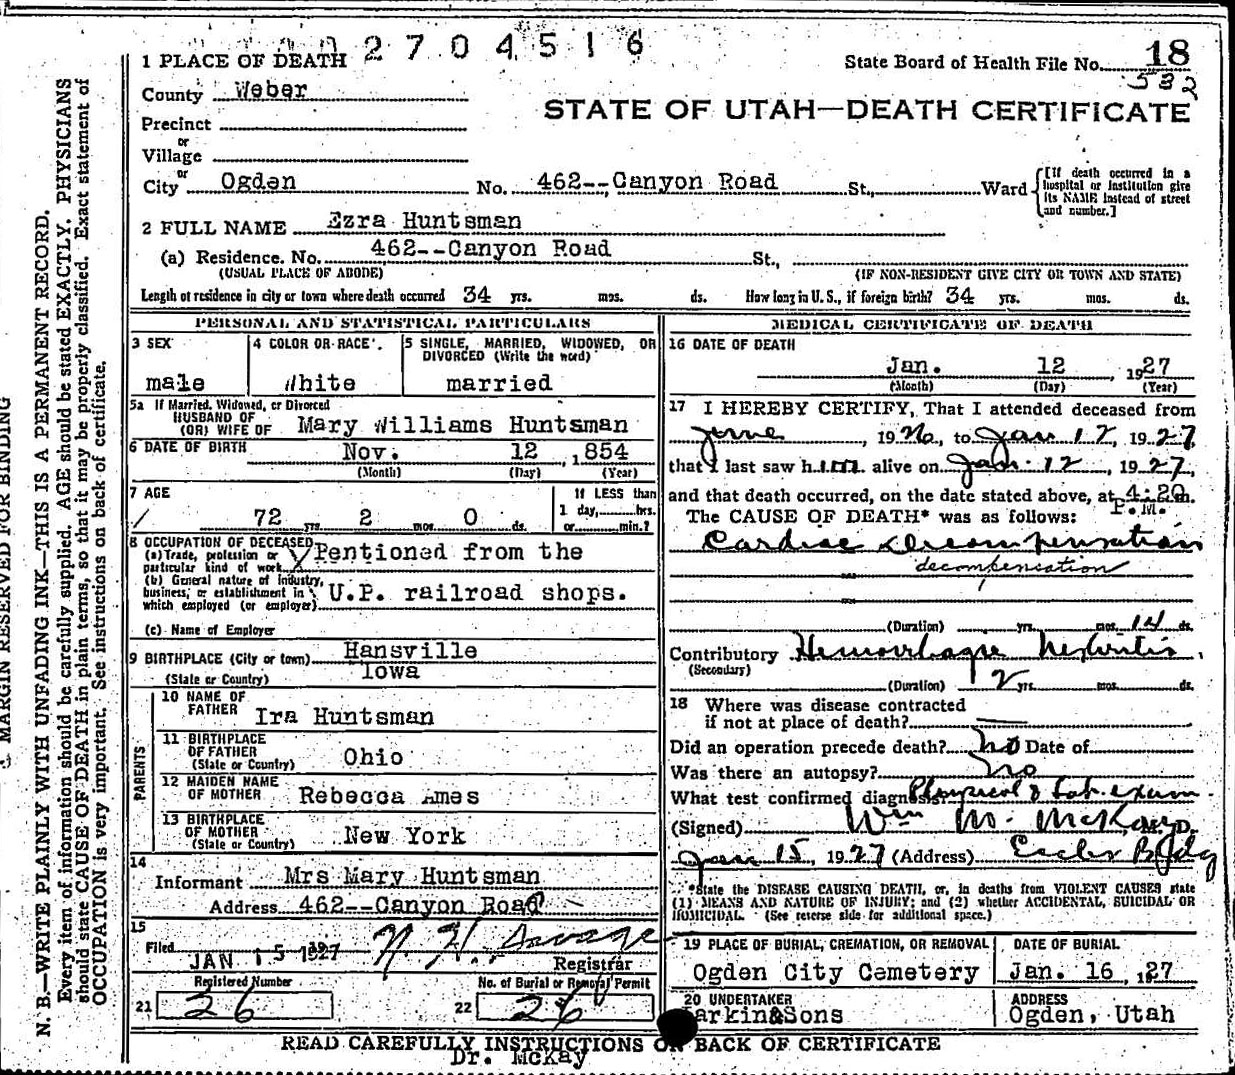 2704516
1 PLACE OF DEATH
State Board of Health File No. 18
532
County Weber
STATE OF UTAH—DEATH CERTIFICATE
Precinct
or
Village
or
City Ogden No. 462--Canyon Road St., Ward
[If death occurred in a hospital or institution give its NAME instead of street and number.]
2 FULL NAME Ezra Huntsman
(a) Residence. No. 462--Canyon Road St.,
(USUAL PLACE OF ABODE) (IF NON-RESIDENT GIVE CITY OR TOWN AND STATE)
Length of residence in city or town where death occurred 34 yrs. mos. ds. How long in U. S., if foreign birth? 34 yrs. mos. ds.
PERSONAL AND STATISTICAL PARTICULARS
3 SEX
male
4 COLOR OR RACE
White
5 SINGLE, MARRIED, WIDOWED, OR
DIVORCED (Write the word)
married
5a If Married, Widowed, or Divorced
HUSBAND OF
(OR) WIFE OF Mary Williams Huntsman
6 DATE OF BIRTH Nov. 12, 1854
(Month) (Day) (Year)
7 AGE
72 yrs. 2 mos. 0 ds.
If LESS than
1 day, hrs.
or min.?
8 OCCUPATION OF DECEASED
(a) Trade, profession or
particular kind of work Pentioned from the
(b) General nature of industry,
business, or establishment in
which employed (or employer) U.P. railroad shops.
(c) Name of Employer
9 BIRTHPLACE (City or town) Hansville
(State or Country) Iowa
PARENTS
10 NAME OF
FATHER Ira Huntsman
11 BIRTHPLACE
OF FATHER
(State or Country) Ohio
12 MAIDEN NAME
OF MOTHER Rebecca Ames
13 BIRTHPLACE
OF MOTHER
(State or Country) New York
14
Informant Mrs Mary Huntsman
Address 462--Canyon Road
15
Filed JAN 15 1927 N. H. Savage
Registrar
Registered Number
21 26
No. of Burial or Removal Permit
22 26
MEDICAL CERTIFICATE OF DEATH
16 DATE OF DEATH
Jan. 12, 1927
(Month) (Day) (Year)
17 I HEREBY CERTIFY, That I attended deceased from
June, 1926, to Jan 12, 1927
that I last saw him alive on Jan. 12, 1927,
and that death occurred, on the date stated above, at 4:20 m.
P.M.
The CAUSE OF DEATH* was as follows:
Cardiac Decompensation
decompensation
(Duration) yrs. mos. 14 ds.
Contributory Hemorrhagic Nephritis
(Secondary)
(Duration) 2 yrs. mos. ds.
18 Where was disease contracted
if not at place of death?
Did an operation precede death? no Date of
Was there an autopsy? no
What test confirmed diagnosis? Physical & Lab. exam.
(Signed) Wm M. McKay, M. D.
Jan 15, 1927 (Address) Eccles Bldg
*State the DISEASE CAUSING DEATH, or, in deaths from VIOLENT CAUSES state
(1) MEANS AND NATURE OF INJURY; and (2) whether ACCIDENTAL, SUICIDAL OR
HOMICIDAL. (See reverse side for additional space.)
19 PLACE OF BURIAL, CREMATION, OR REMOVAL
Ogden City Cemetery
DATE OF BURIAL
Jan. 16, 1927
20 UNDERTAKER
arkin&Sons
ADDRESS
Ogden, Utah
READ CAREFULLY INSTRUCTIONS ON BACK OF CERTIFICATE
Dr. McKay
MARGIN RESERVED FOR BINDING
N. B.—WRITE PLAINLY WITH UNFADING INK—THIS IS A PERMANENT RECORD.
Every item of information should be carefully supplied. AGE should be stated EXACTLY. PHYSICIANS
should state CAUSE OF DEATH in plain terms, so that it may be properly classified. Exact statement of
OCCUPATION is very important. See instructions on back of certificate.